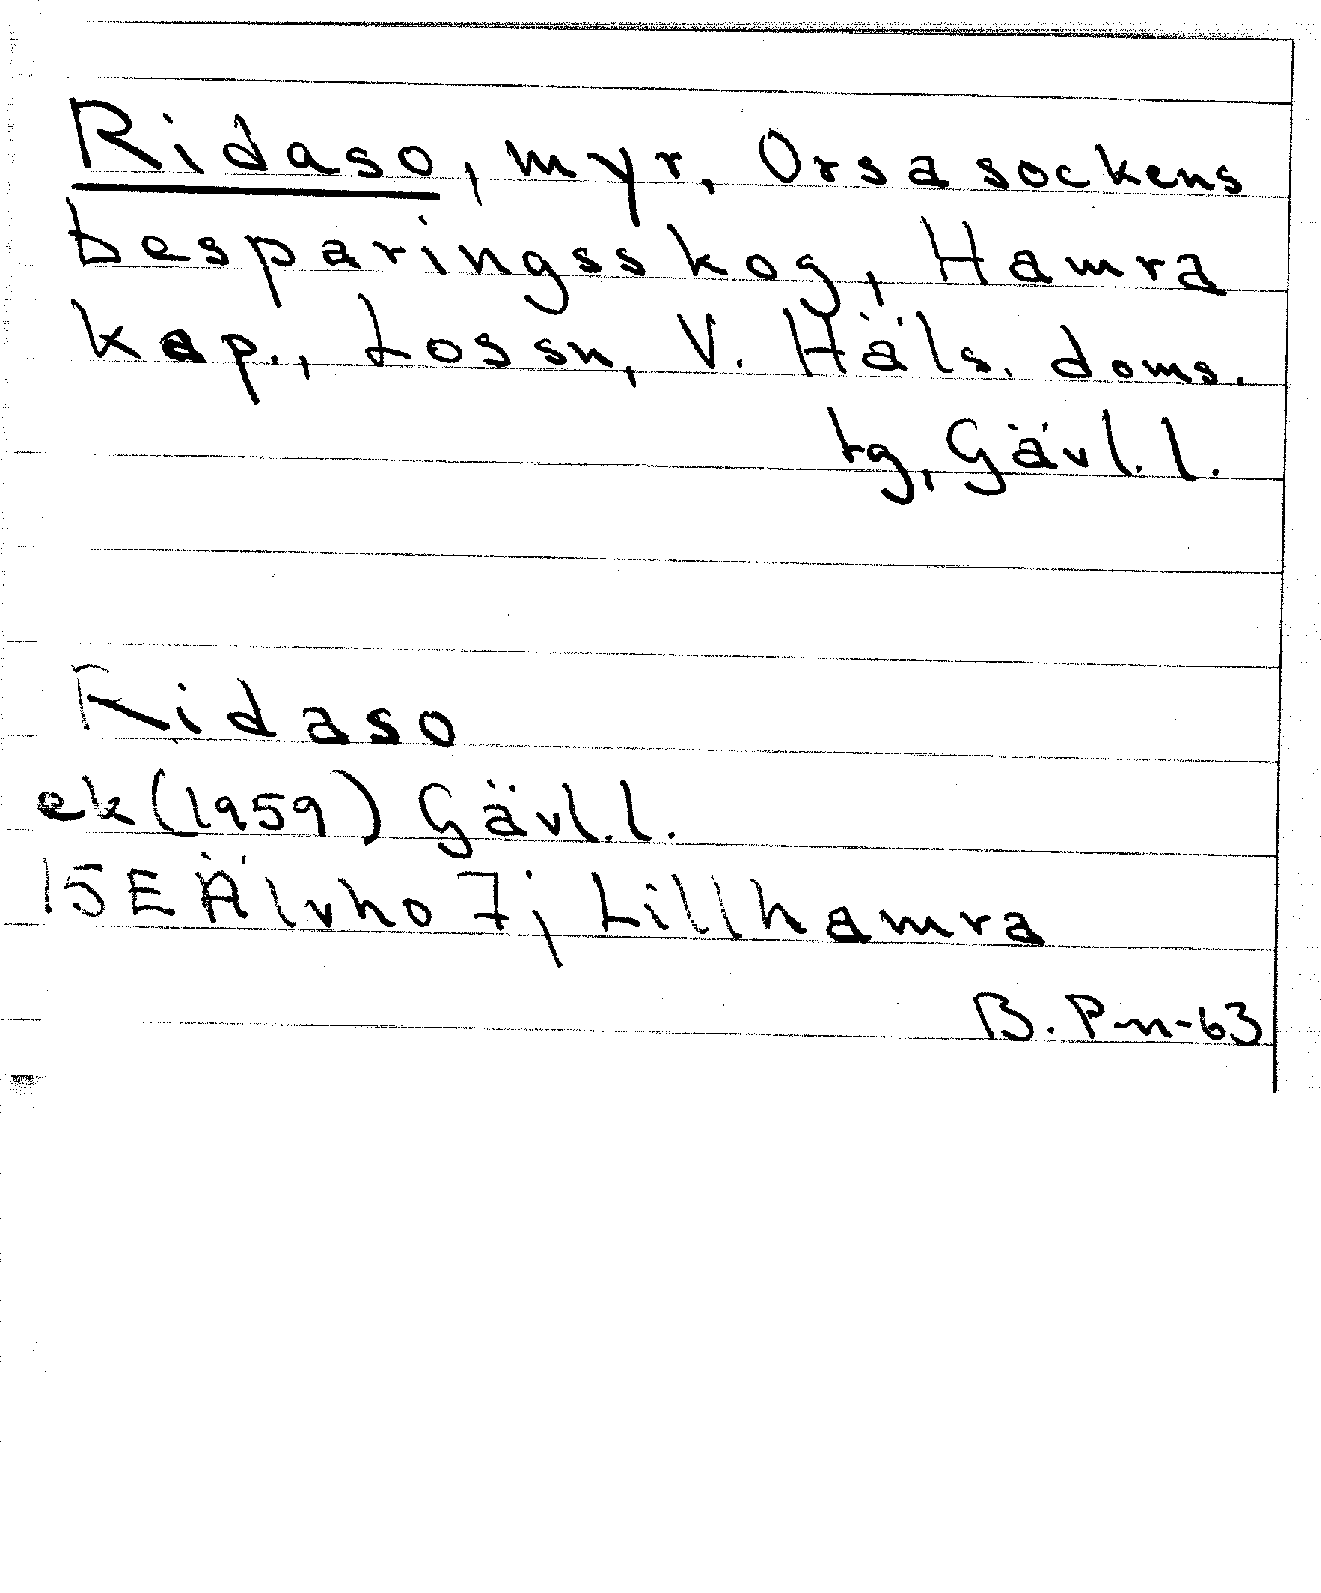 Ridaso, myr, Orsa sockens
besparingsskog, Hamra
kap., Lossn, V. Häls. doms.
tg, Gävl.l.
Ridaso
ek (1959) Gävl.l.
15E Älvho 7; Lillhamra
B. P-n-63